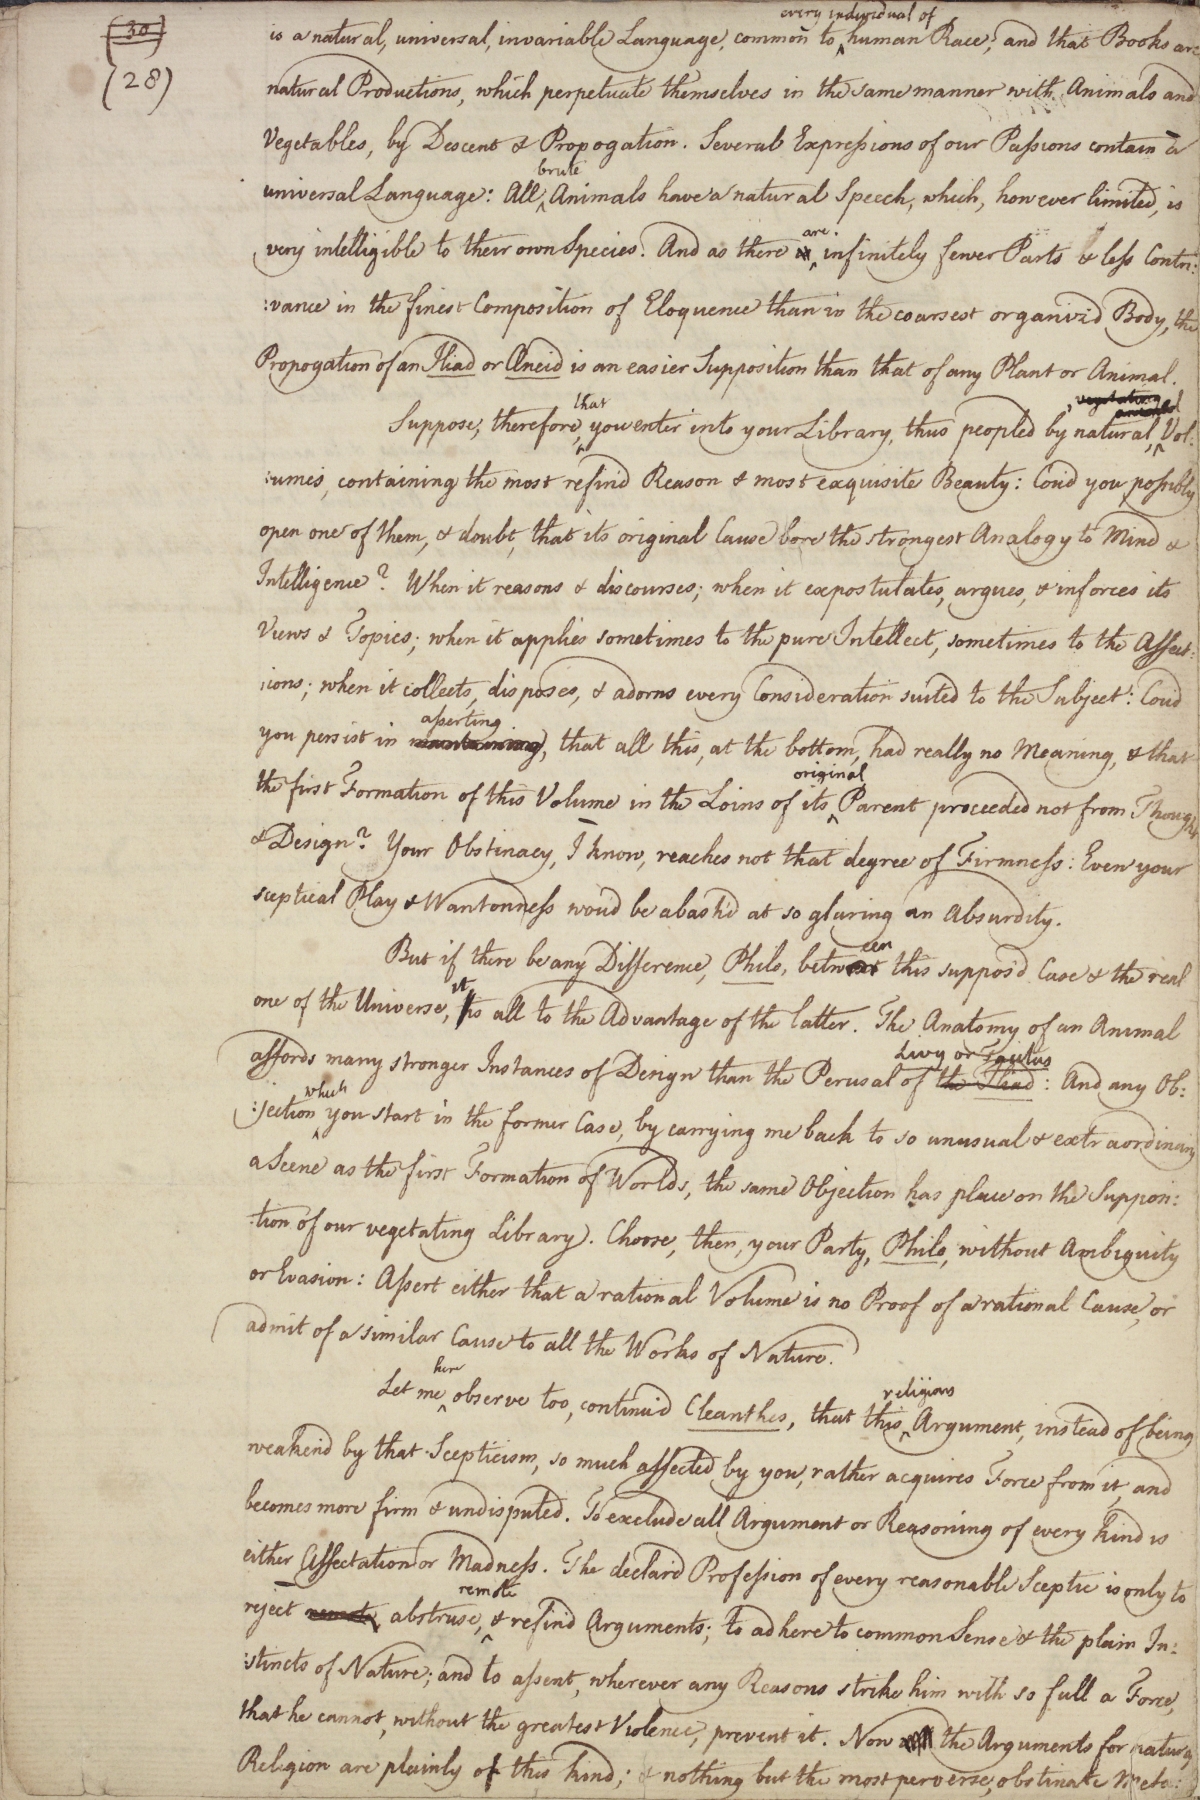 (30)
(28)
every individual of
is a natural, universal, invariable Language, common to human Race, and that Books are
natural Productions, which perpetuate themselves in the same manner with Animals and
Vegetables, by Descent & Propogation. Several Expressions of our Passions contain a
brute
universal Language: All Animals have a natural Speech, which, however limited, is
are
very intelligible to their own Species. And as there infinitely fewer Parts & less Contri:
:vance in the finest Composition of Eloquence than in the coarsest organiz'd Body, the
Propogation of an Iliad or Æneid is an easier Supposition than that of any Plant or Animal.
that
vegetating
Suppose, therefore, you enter into your Library, thus peopled by natural, Vol:
:umes, containing the most refin'd Reason & most exquisite Beauty: Cou'd you possibly
open one of them, & doubt, that its original Cause bore the strongest Analogy to Mind &
Intelligence? When it reasons & discourses; when it expostulates, argues, & inforces its
Views & Topics; when it applies sometimes to the pure Intellect, sometimes to the Affect:
:ions; when it collects, disposes, & adorns every Consideration suited to the Subject: Cou'd
asserting
you persist in maintaining, that all this, at the bottom, had really no Meaning, & that
original
the first Formation of this Volume in the Loins of its Parent proceeded not from Thought
& Design? Your Obstinacy, I know, reaches not that degree of Firmness: Even your
sceptical Play & Wantonness wou'd be abash'd at so glaring an Absurdity.
een
But if there be any Difference, Philo, betw this suppos'd Case & the real
it
one of the Universe, is all to the Advantage of the latter. The Anatomy of an Animal
Livy or Tacitus
affords many stronger Instances of Design than the Perusal of the Iliad: And any Ob:
which
:jection you start in the former Case, by carrying me back to so unusual & extraordinary
a Scene as the first Formation of Worlds, the same Objection has place on the Supposi:
:tion of our vegetating Library. Choose, then, your Party, Philo, without Ambiguity
or Evasion: Assert either that a rational Volume is no Proof of a rational Cause, or
admit of a similar Cause to all the Works of Nature.
here
religious
Let me observe too, continu'd Cleanthes, that this Argument, instead of being
weaken'd by that Scepticism, so much affected by you, rather acquires Force from it, and
becomes more firm & undisputed. To exclude all Argument or Reasoning of every kind is
either Affectation or Madness. The declar'd Profession of every reasonable Sceptic is only to
remote
reject remote, abstruse, & refin'd Arguments; to adhere to common Sense & the plain In:
:stincts of Nature; and to assent, wherever any Reasons strike him with so full a Force,
that he cannot, without the greatest Violence, prevent it. Now the Arguments for natural
Religion are plainly of this kind; & nothing but the most perverse, obstinate Meta: